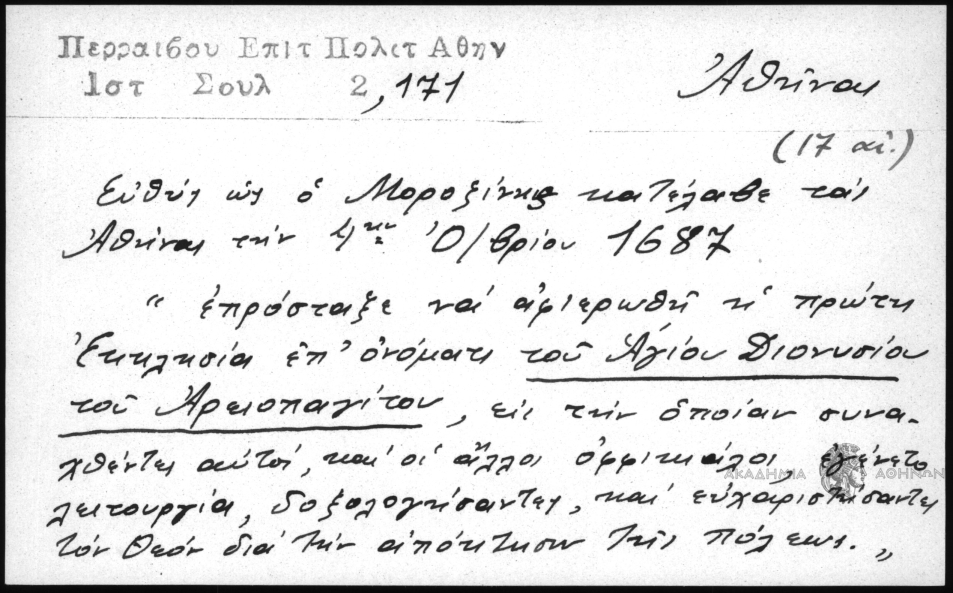 Περραιβου Επιτ Πολιτ Αθην
Ιστ Σουλ 2,171
Ἀθῆναι
(17 αἰ.)
Εὐθύς ὡς ὁ Μοροζίνης κατέλαβε τάς
Ἀθήνας τήν 4ην Ὀ/βρίου 1687
" ἐπρόσταξε νά ἀφιερωθῇ ἡ πρώτη
Ἐκκλησία ἐπ' ὀνόματι τοῦ Ἁγίου Διονυσίου
τοῦ Ἀρειοπαγίτου, εἰς τήν ὁποίαν συνα-
χθέντες αὐτοί, καί οἱ ἄλλοι ὀφφικιάλοι, ἐγένετο
ΑΚΑΔΗΜΙΑ ΑΘΗΝΩΝ
λειτουργία, δοξολογήσαντες, καί εὐχαριστήσαντες
τόν Θεόν διά τήν ἀπόκτησιν τῆς πόλεως. "